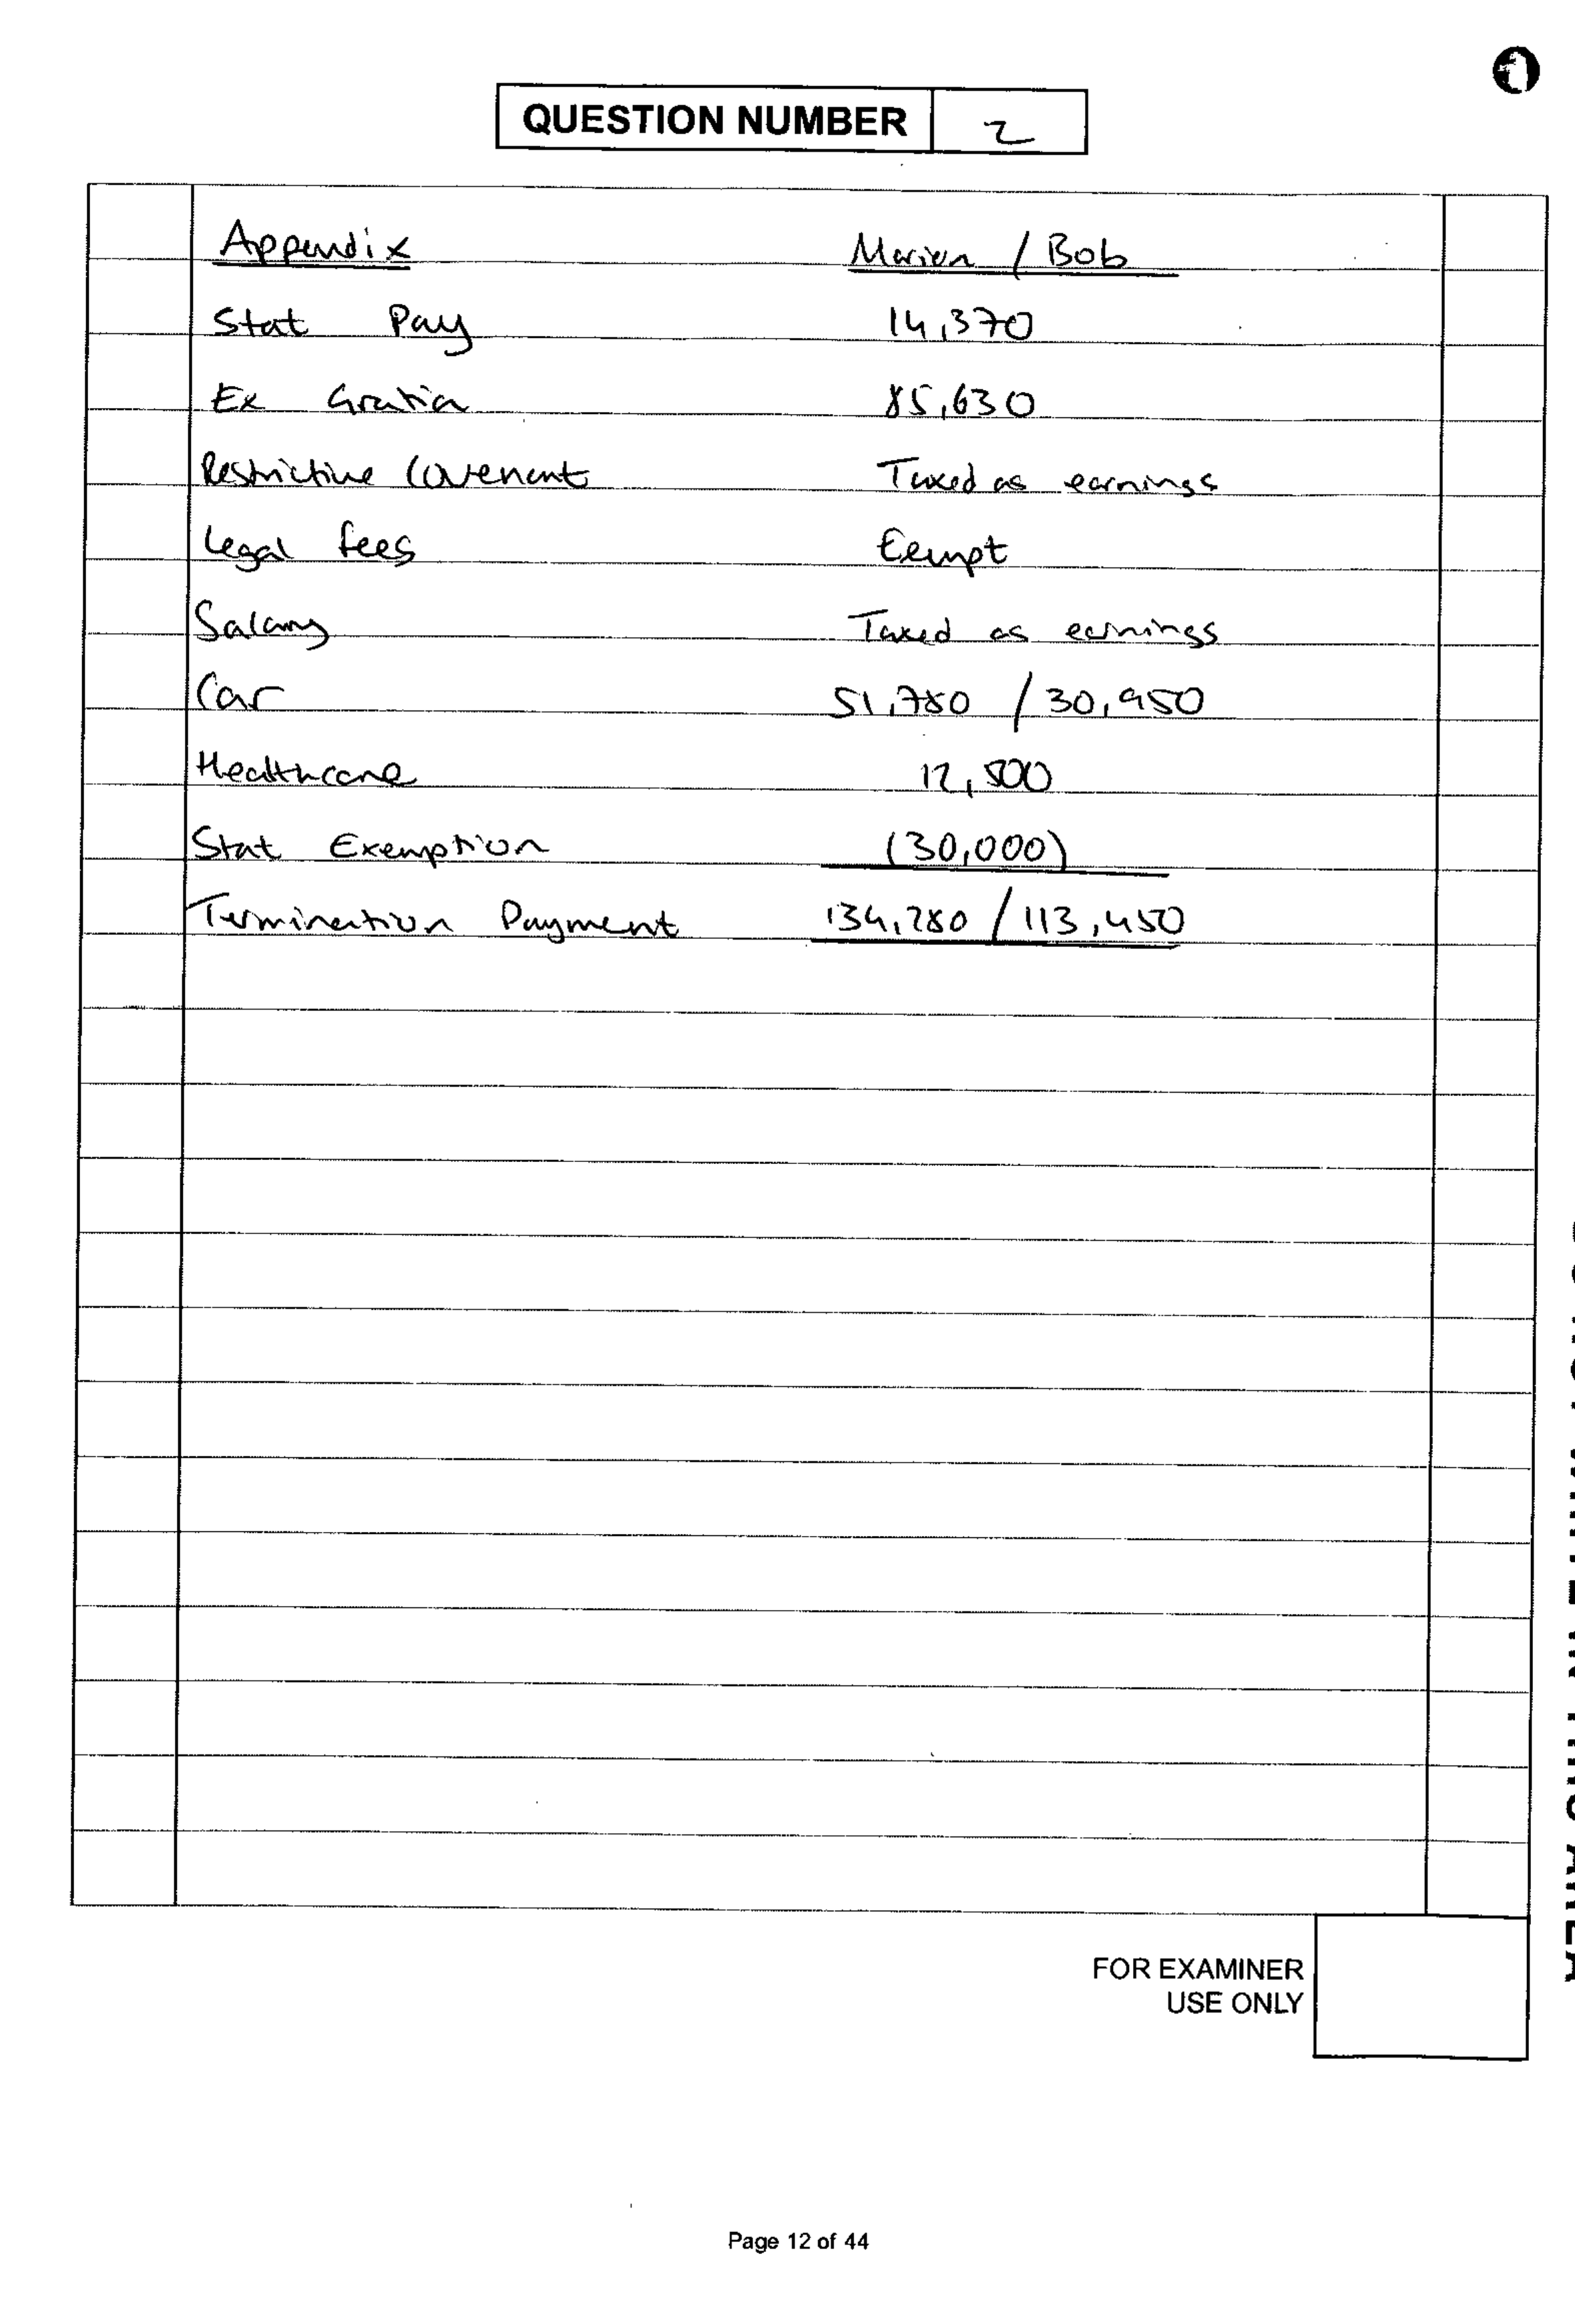 QUESTION NUMBER 2
Appendix Marion / Bob
Stat Pay 14,370
Ex Gratia 85,630
Restrictive Covenant Taxed as earnings
Legal fees Eempt
Salary Taxed as earnings
Car 51,780 / 30,950
Healthcare 12,500
Stat Exemption (30,000)
Termination Payment 134,280 / 113,450
FOR EXAMINER
USE ONLY
Page 12 of 44